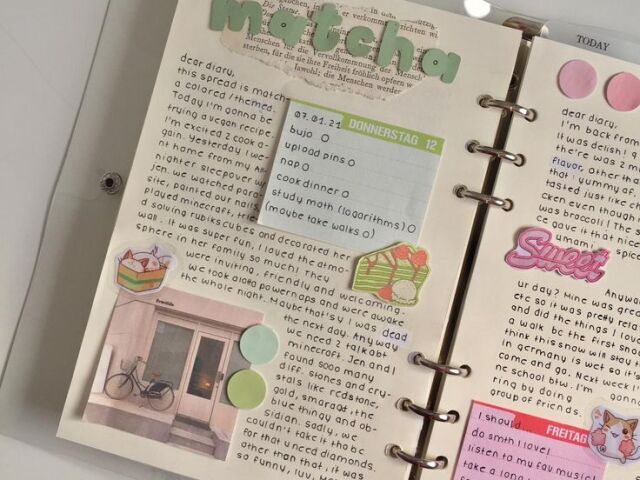 matcha
in, er verkommen
Die Steme
Menschen für die Vervollkommnung der Mensch
sterben, für die sie ihre Freiheit fröhlich opfern w
Jawohl; die Menschen
dear diary,
this spread is match
a colored/themed.
Today I'm gonna be
trying a vegan recipe.
I'm excited 2 cook a-
gain. Yesterday I we-
nt home from my All
nighter sleepover w/
Jen. we watched para-
site, painted our nails,
played minecraft, tried
d solving rubiks cubes and decorated her
wall. It was super fun, I loved the atmo-
sphere in her family so much! They
were inviting, friendly and welcoming.
we took along powernaps and were awake
the whole night. Maybe that's y I was dead
the next day. Anyway
we need 2 talk abt
minecraft. Jen and I
found sooo many
diff. stones and cry-
stals like redstone,
gold, smaragd, the
blue thingy and ob-
sidian. sadly, we
couldn't take it tho bc
for that u need diamonds.
other than that, it was
so funny, luv, Her
07.01.21
DONNERSTAG 12
bujo O
upload pins O
nap O
cook dinner O
study math (logarithms) O
(maybe take walks O)
TODAY
dear diary,
I'm back from
It was delish! o
there was 2 m
flavor, other tha
that i yummy af
tasted just like ch
cken even though
was broccoli! The s
ce gave it that nice
umami & spice
Sweet
Anywa
ur day? Mine was grea
etc so it was pretty rela
and did the things I love
a walk be the first snow
think this snow will stay f
in Germany is wet so it's
come and go. Next week I
ne school btw. I'm gonna
ring by doing
group of friends.
FREITAG
I should
do smth I love!
listen to my fav. music!
take a long